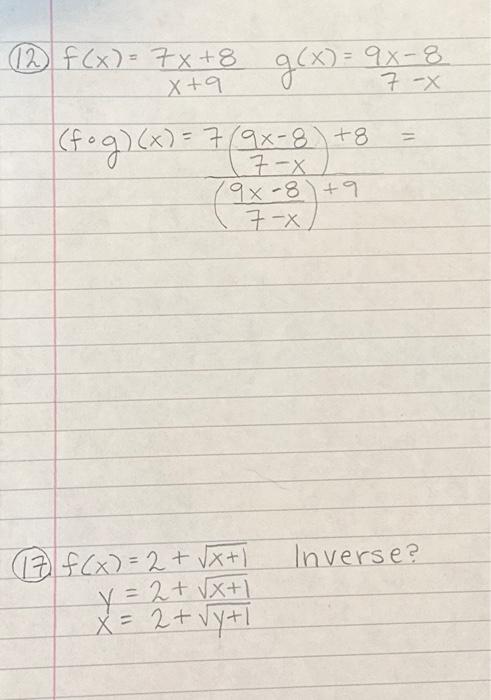 12 f(x) = (7x+8)/(x+9) g(x) = (9x-8)/(7-x)
(f∘g)(x) = (7((9x-8)/(7-x))+8)/(((9x-8)/(7-x))+9) =
17 f(x) = 2 + √(x+1) Inverse?
y = 2 + √(x+1)
x = 2 + √(y+1)